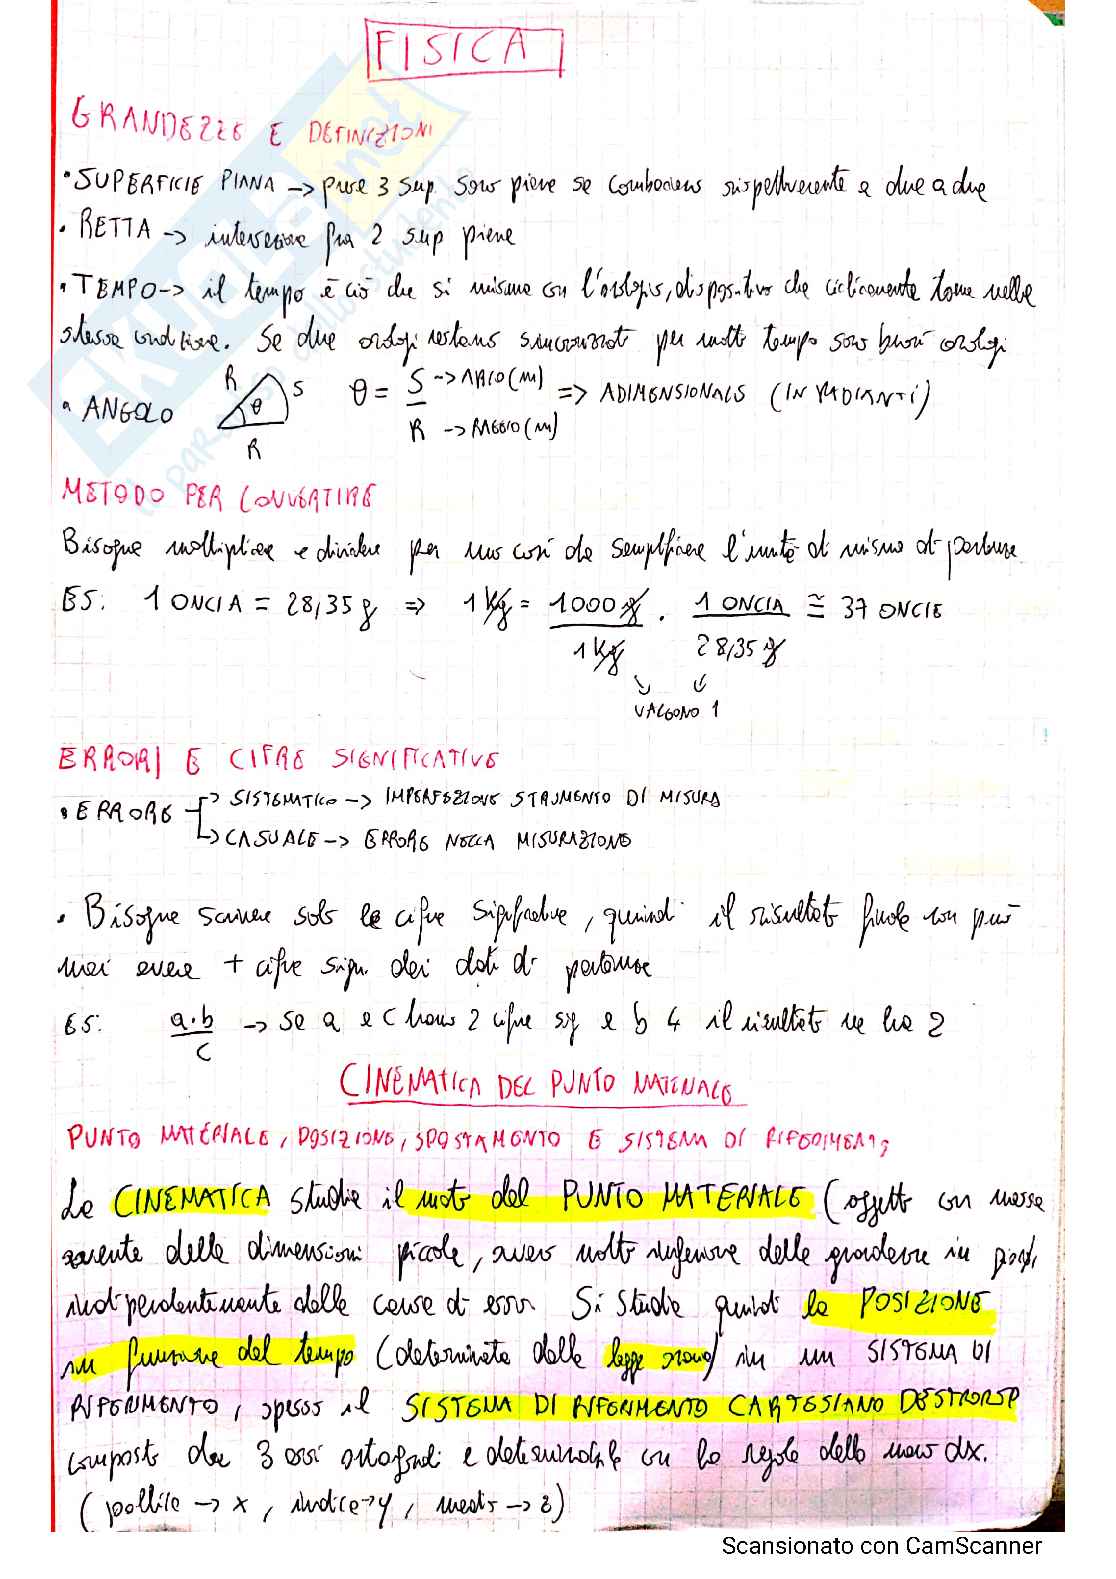 FISICA
GRANDEZZE E DEFINIZIONI
• SUPERFICIE PIANA -> prese 3 sup. sono piane se combaciano rispettivamente a due a due
• RETTA -> intersezione fra 2 sup piane
• TEMPO -> il tempo è ciò che si misura con l'orologio, dispositivo che ciclicamente torna nelle
stesse condizione. Se due orologi restano sincronizzati per molto tempo sono buoni orologi
• ANGOLO R θ S R θ = S/R -> ARCO (m) -> RAGGIO (m) => ADIMENSIONALE (IN RADIANTI)
METODO PER CONVERTIRE
Bisogna moltiplicare e dividere per uno così da semplificare l'unità di misura di partenza
ES: 1 ONCIA = 28,35 g => 1 Kg = 1000 g / 1 Kg . 1 ONCIA / 28,35 g ≅ 37 ONCIE
VALGONO 1
ERRORI E CIFRE SIGNIFICATIVE
• ERRORE -> SISTEMATICO -> IMPERFEZIONE STRUMENTO DI MISURA
-> CASUALE -> ERRORE NELLA MISURAZIONE
• Bisogna scrivere solo le cifre significative, quindi il risultato finale non può
mai avere + cifre sign. dei dati di partenza
ES: a·b / c -> se a e c hanno 2 cifre sig e b 4 il risultato ne ha 2
CINEMATICA DEL PUNTO MATERIALE
PUNTO MATERIALE, POSIZIONE, SPOSTAMENTO E SISTEMA DI RIFERIMENTO
La CINEMATICA studia il moto del PUNTO MATERIALE (oggetto con massa
avente delle dimensioni piccole, ovvero molto inferiore delle grandezze in gioco)
indipendentemente dalle cause di esso. Si studia quindi la POSIZIONE
in funzione del tempo (determinata dalla legge oraria) in un SISTEMA DI
RIFERIMENTO, spesso il SISTEMA DI RIFERIMENTO CARTESIANO DESTRORSO
composto da 3 assi ortogonali e determinabile con la regola della mano dx.
(pollice -> x, indice -> y, medio -> z)
SKUOLA.net
Scansionato con CamScanner